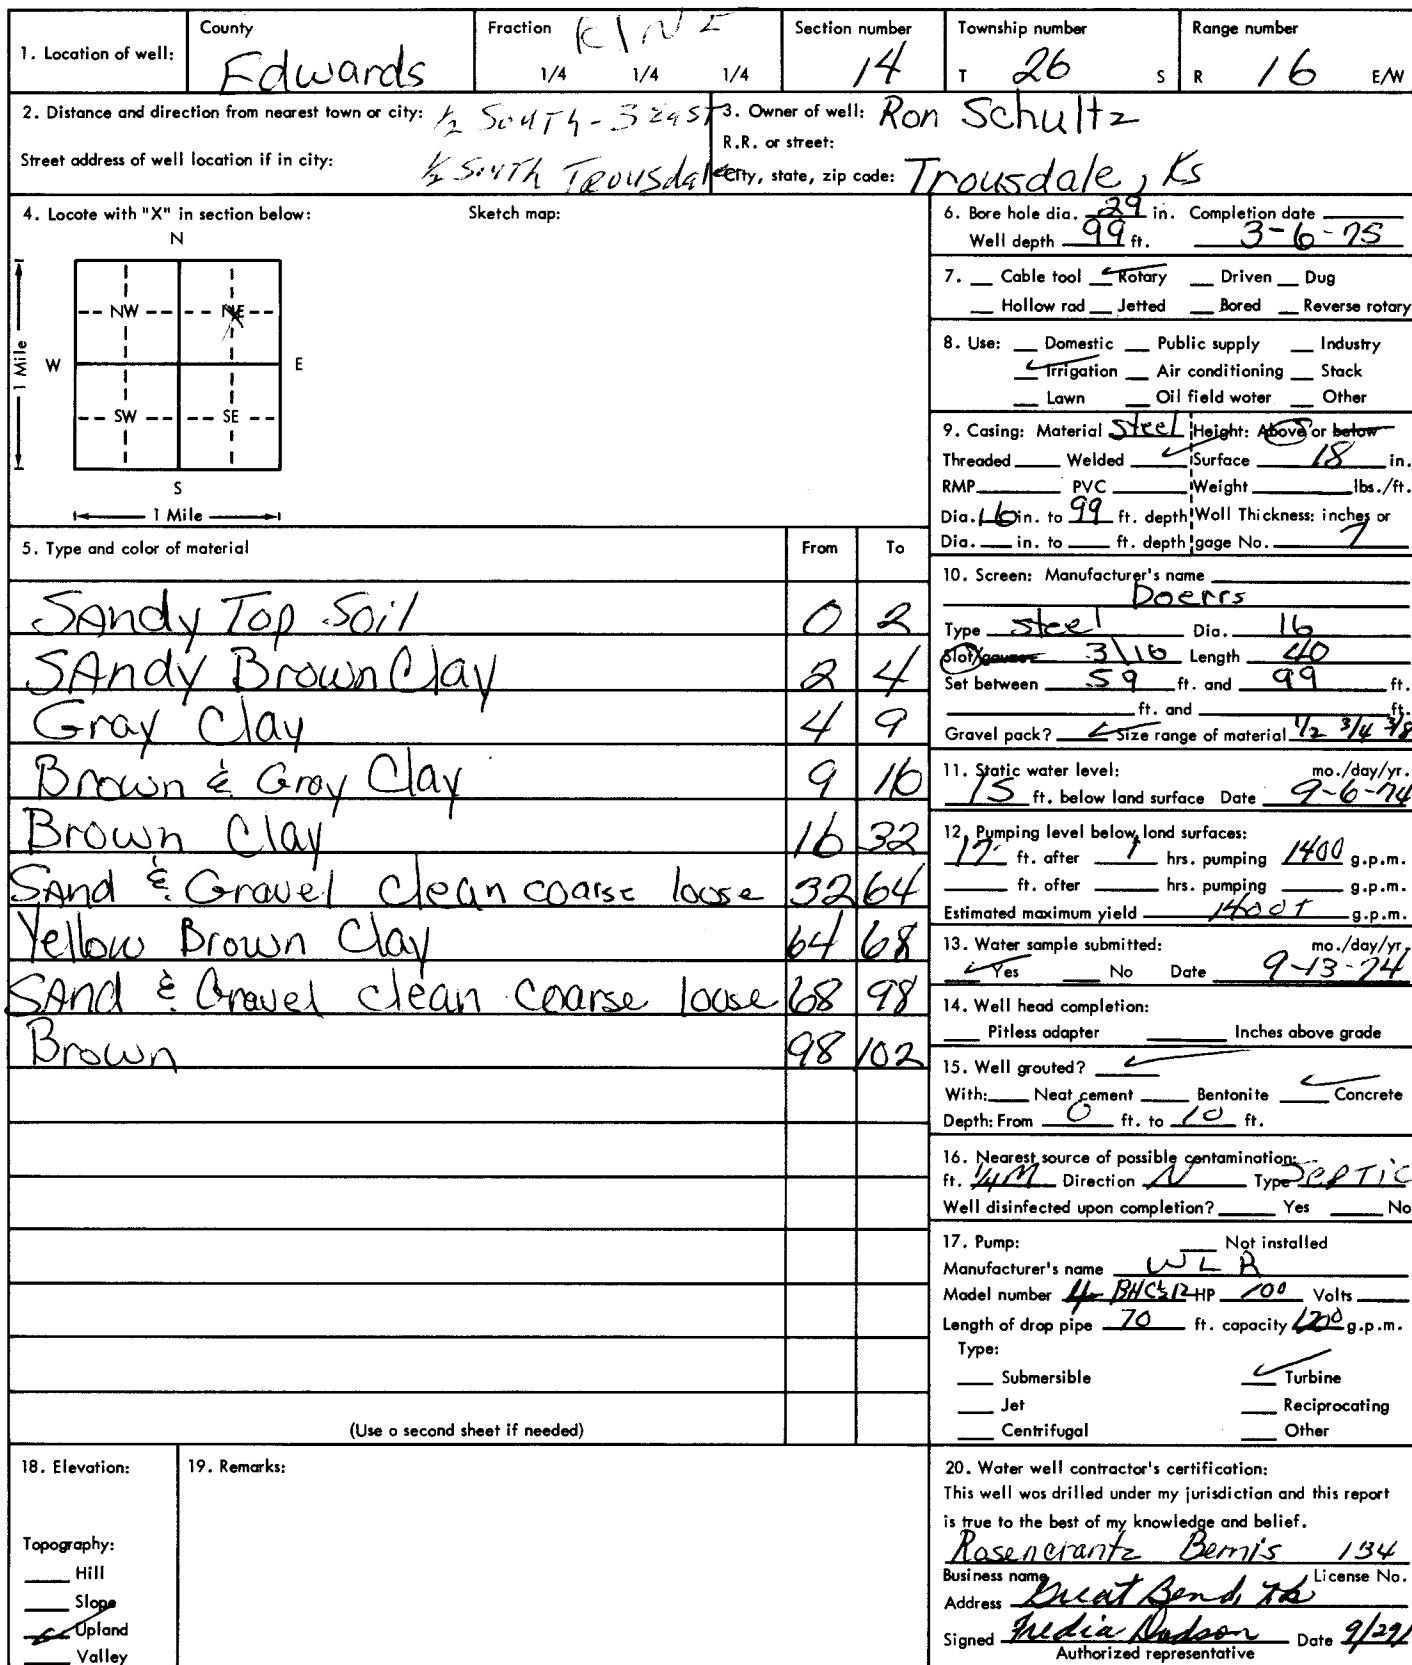 County Fraction Section number Township number Range number
1. Location of well: Edwards 1/4 1/4 1/4 14 T 26 S R 16 E/W
2. Distance and direction from nearest town or city: 1/2 South - 3 East
Street address of well location if in city: 1/2 South Trousdale
3. Owner of well: Ron Schultz
R.R. or street:
City, state, zip code: Trousdale, Ks
4. Locote with "X" in section below: Sketch map:
N
NW NE
W E
1 Mile
SW SE
S
1 Mile
5. Type and color of material From To
Sandy Top Soil 0 2
Sandy Brown Clay 2 4
Gray Clay 4 9
Brown & Gray Clay 9 16
Brown Clay 16 32
Sand & Gravel clean coarse loose 32 64
Yellow Brown Clay 64 68
Sand & Gravel clean coarse loose 68 98
Brown 98 102
(Use a second sheet if needed)
6. Bore hole dia. 29 in. Completion date
Well depth 99 ft. 3-6-75
7. Cable tool Rotary Driven Dug
Hollow rod Jetted Bored Reverse rotary
8. Use: Domestic Public supply Industry
Irrigation Air conditioning Stack
Lawn Oil field water Other
9. Casing: Material Steel Height: Above or below
Threaded Welded Surface 18 in.
RMP PVC Weight lbs./ft.
Dia. 16 in. to 99 ft. depth Wall Thickness: inches or
Dia. in. to ft. depth gage No. 7
10. Screen: Manufacturer's name
Doerrs
Type Steel Dia. 16
Slot/gauze 3/16 Length 40
Set between 59 ft. and 99 ft.
ft. and ft.
Gravel pack? Size range of material 1/2 3/4 3/8
11. Static water level: mo./day/yr.
15 ft. below land surface Date 9-6-74
12. Pumping level below land surfaces:
17 ft. after 1 hrs. pumping 1400 g.p.m.
ft. after hrs. pumping g.p.m.
Estimated maximum yield 1400+ g.p.m.
13. Water sample submitted: mo./day/yr.
Yes No Date 9-13-74
14. Well head completion:
Pitless adapter Inches above grade
15. Well grouted?
With: Neat cement Bentonite Concrete
Depth: From 0 ft. to 10 ft.
16. Nearest source of possible contamination:
ft. 1/4 M Direction N Type Septic
Well disinfected upon completion? Yes No
17. Pump: Not installed
Manufacturer's name WLR
Model number HP 100 Volts
Length of drop pipe 70 ft. capacity 1200 g.p.m.
Type:
Submersible Turbine
Jet Reciprocating
Centrifugal Other
18. Elevation:
Topography:
Hill
Slope
Upland
Valley
19. Remarks:
20. Water well contractor's certification:
This well was drilled under my jurisdiction and this report
is true to the best of my knowledge and belief.
Rosencrantz Bemis 134
Business name License No.
Address Great Bend, Ks
Signed Fredia Dodson Date 9/29/
Authorized representative